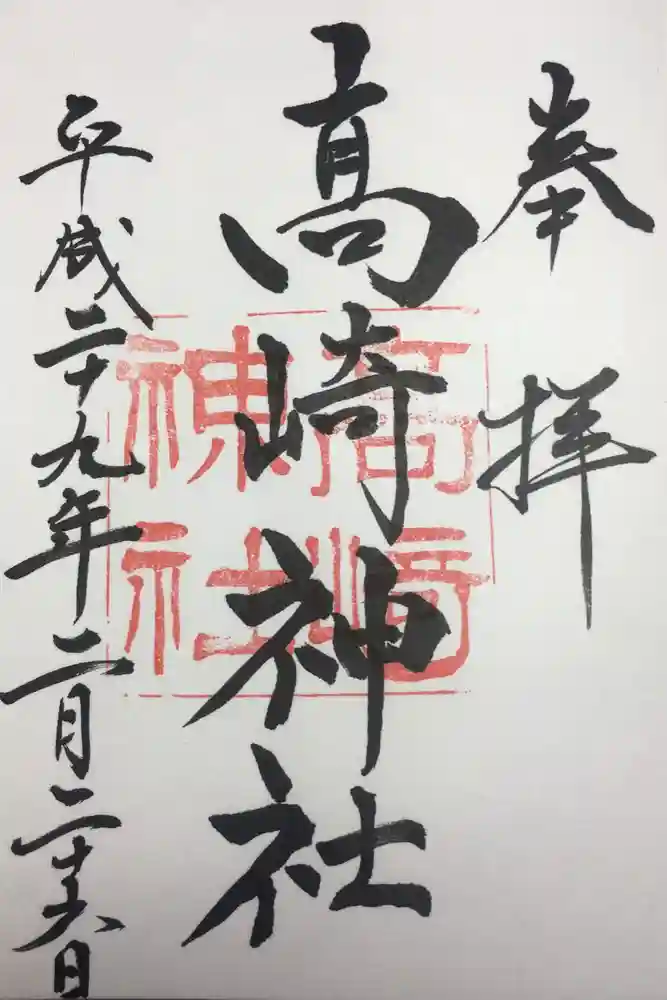 奉拝
高崎神社
高崎神社
平成二十九年二月二十六日